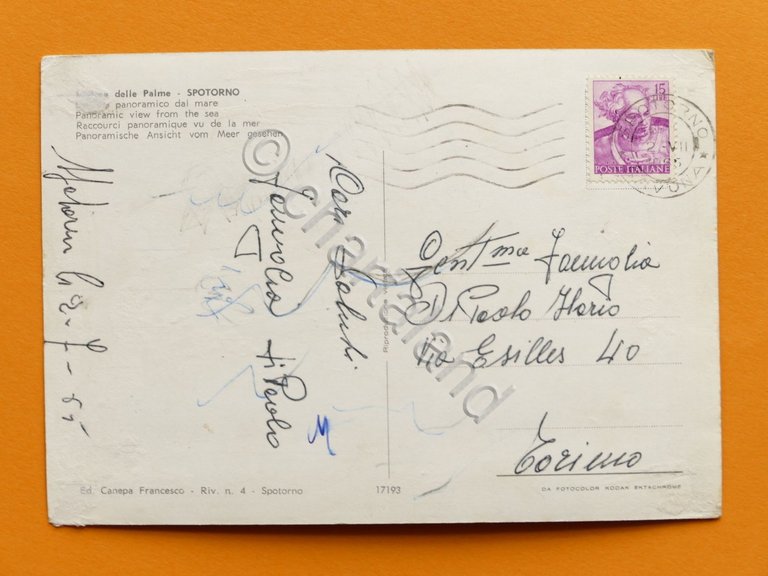 delle Palme - SPOTORNO
panoramico dal mare
Panoramic view from the sea
Raccourci panoramique vu de la mer
Panoramische Ansicht vom Meer gesehen
15
POSTE ITALIANE
SPOTORNO
VII
SAVONA
Spotorno li 2-7-65
Cari Saluti
Famiglia Di Paolo
Gentma Famiglia
Di Paolo Ilario
Via Exilles 40
Torino
Ed. Canepa Francesco - Riv. n. 4 - Spotorno
17193
DA FOTOCOLOR KODAK EKTACHROME
© chartaland